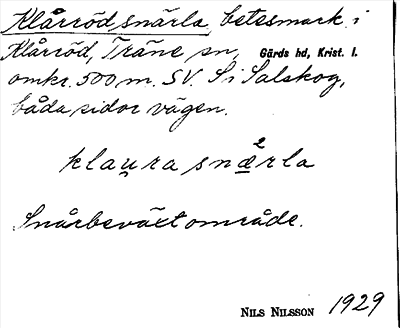 Klårröd, snärla, betesmark i
Klårröd, Träne sn, Gärds hd, Krist. l.
omkr. 500 m. SV. S i Salskog,
båda sidor vägen.
klau̯ra snæ̲²rla
Snårbeväxt område.
NILS NILSSON 1929